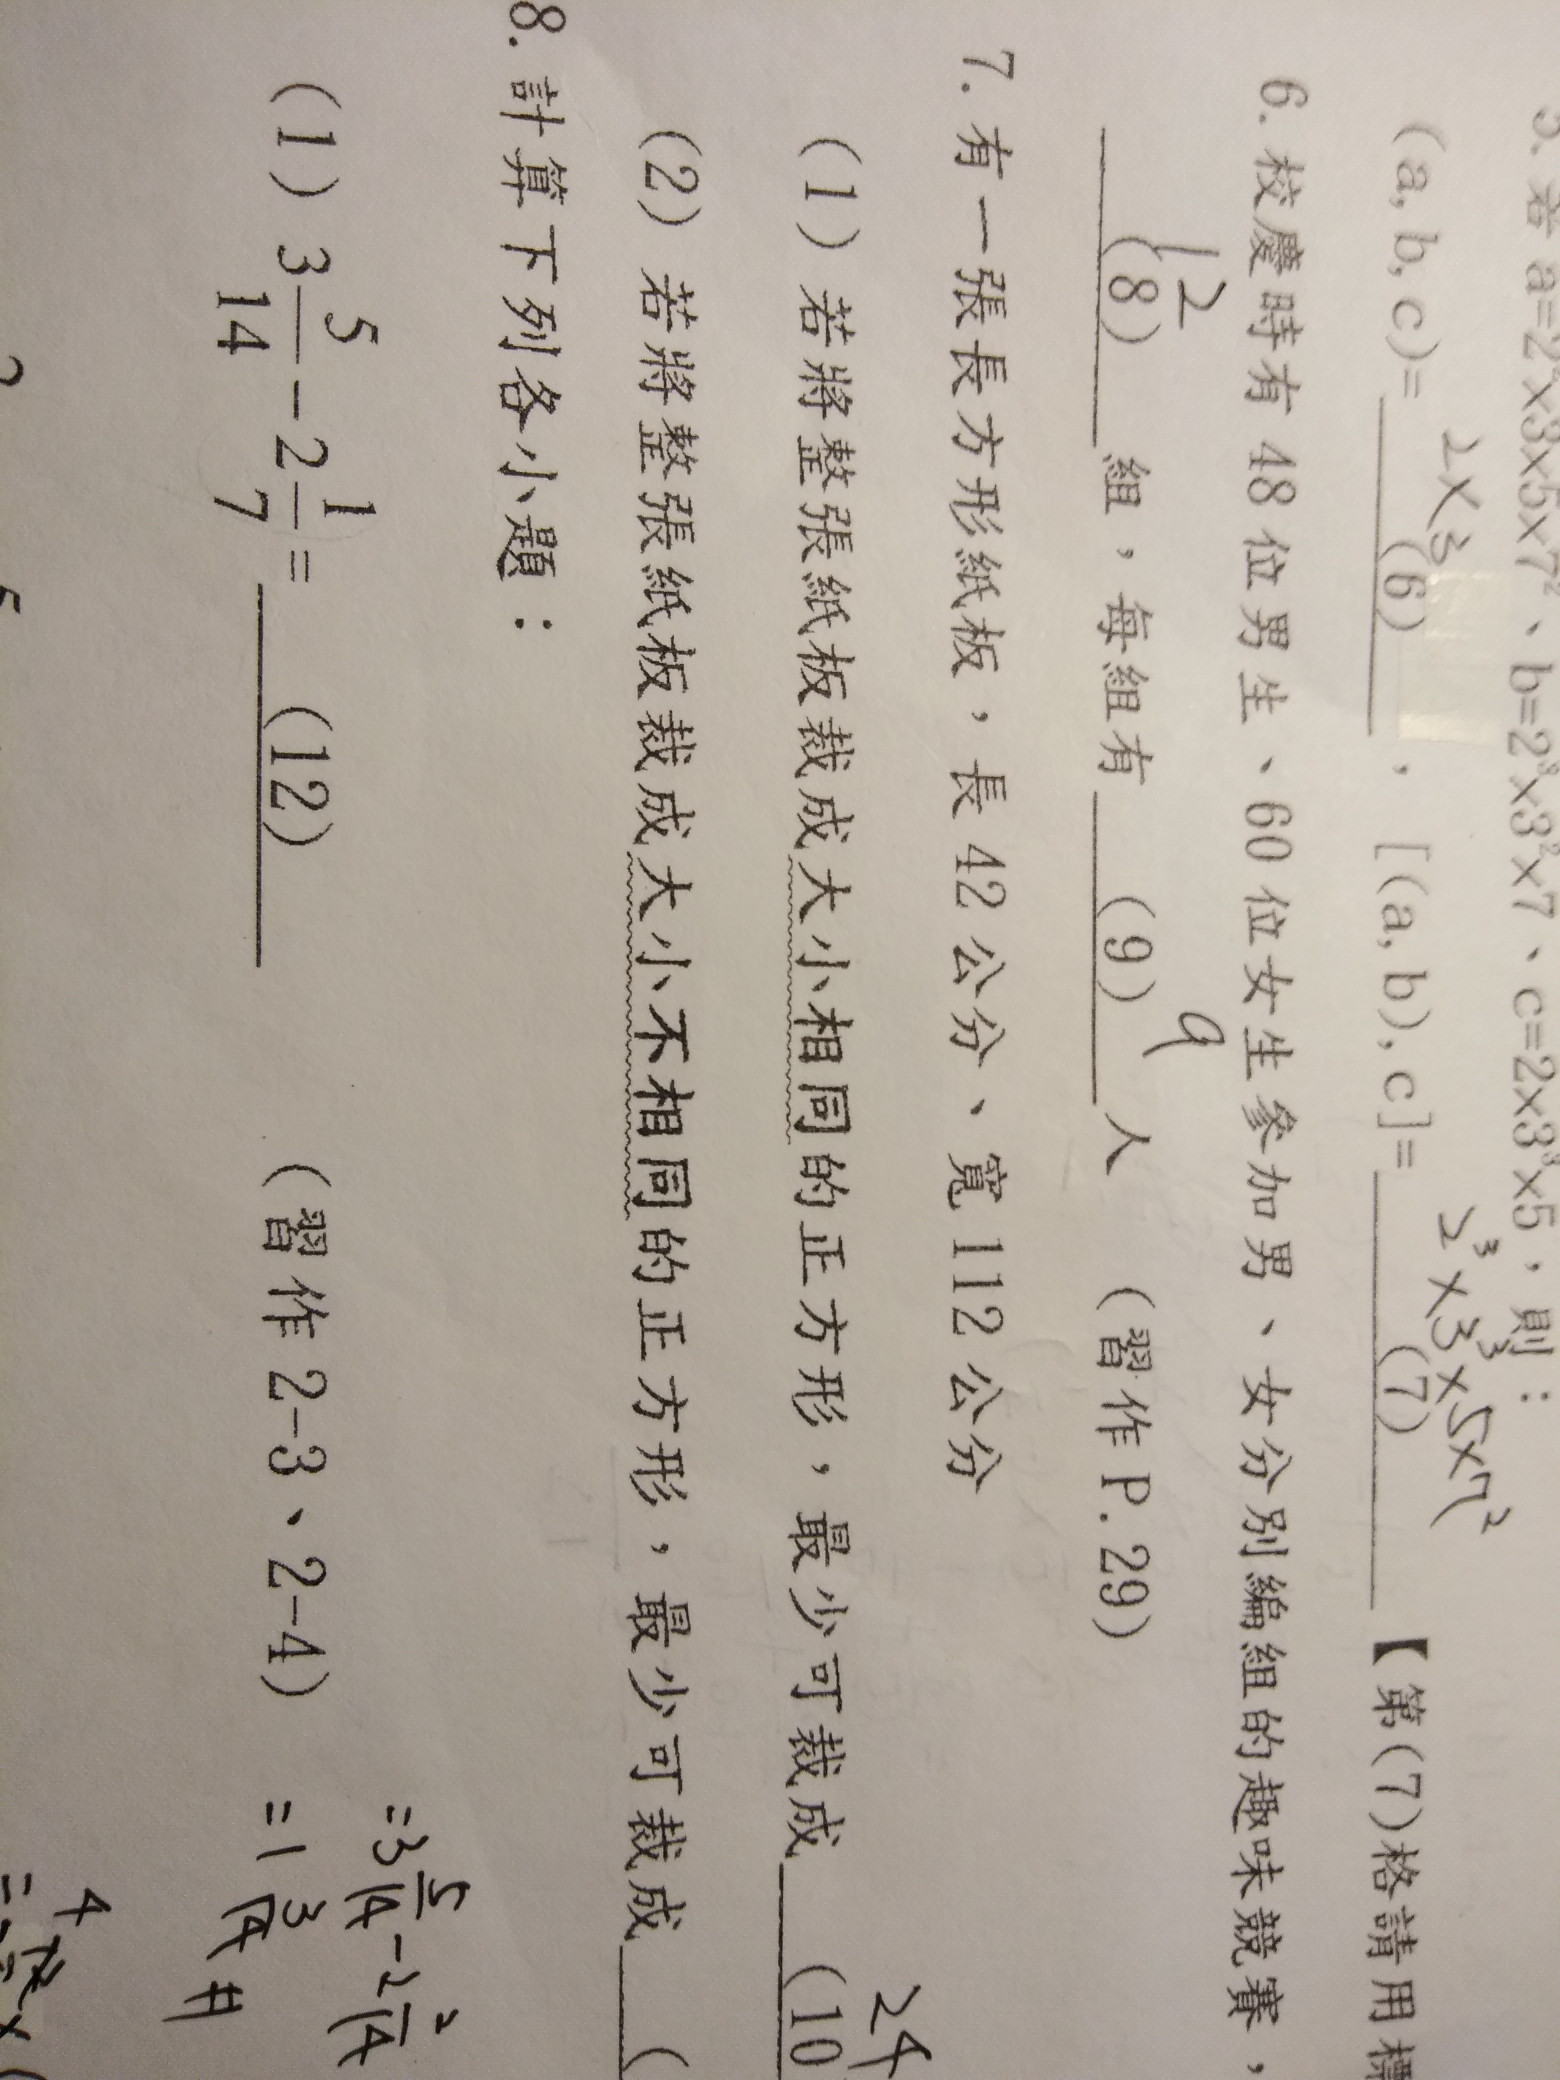 5. 若 a=2²×3×5×7²、b=2³×3²×7、c=2×3³×5,則:
2×3 2³×3³×5×7²
(a, b, c)= (6) , [(a, b), c]= (7) 【第(7)格請用標
6. 校慶時有 48 位男生、60 位女生參加男、女分別編組的趣味競賽,
12 9
(8) 組,每組有 (9) 人 (習作 P.29)
7. 有一張長方形紙板,長 42 公分、寬 112 公分
24
(1) 若將整張紙板裁成大小相同的正方形,最少可裁成 (10
(2) 若將整張紙板裁成大小不相同的正方形,最少可裁成 (
8. 計算下列各小題:
(1) 3 5/14 - 2 1/7 = (12) (習作 2-3、2-4)
=3 5/14 - 2 2/14
=1 3/14 #